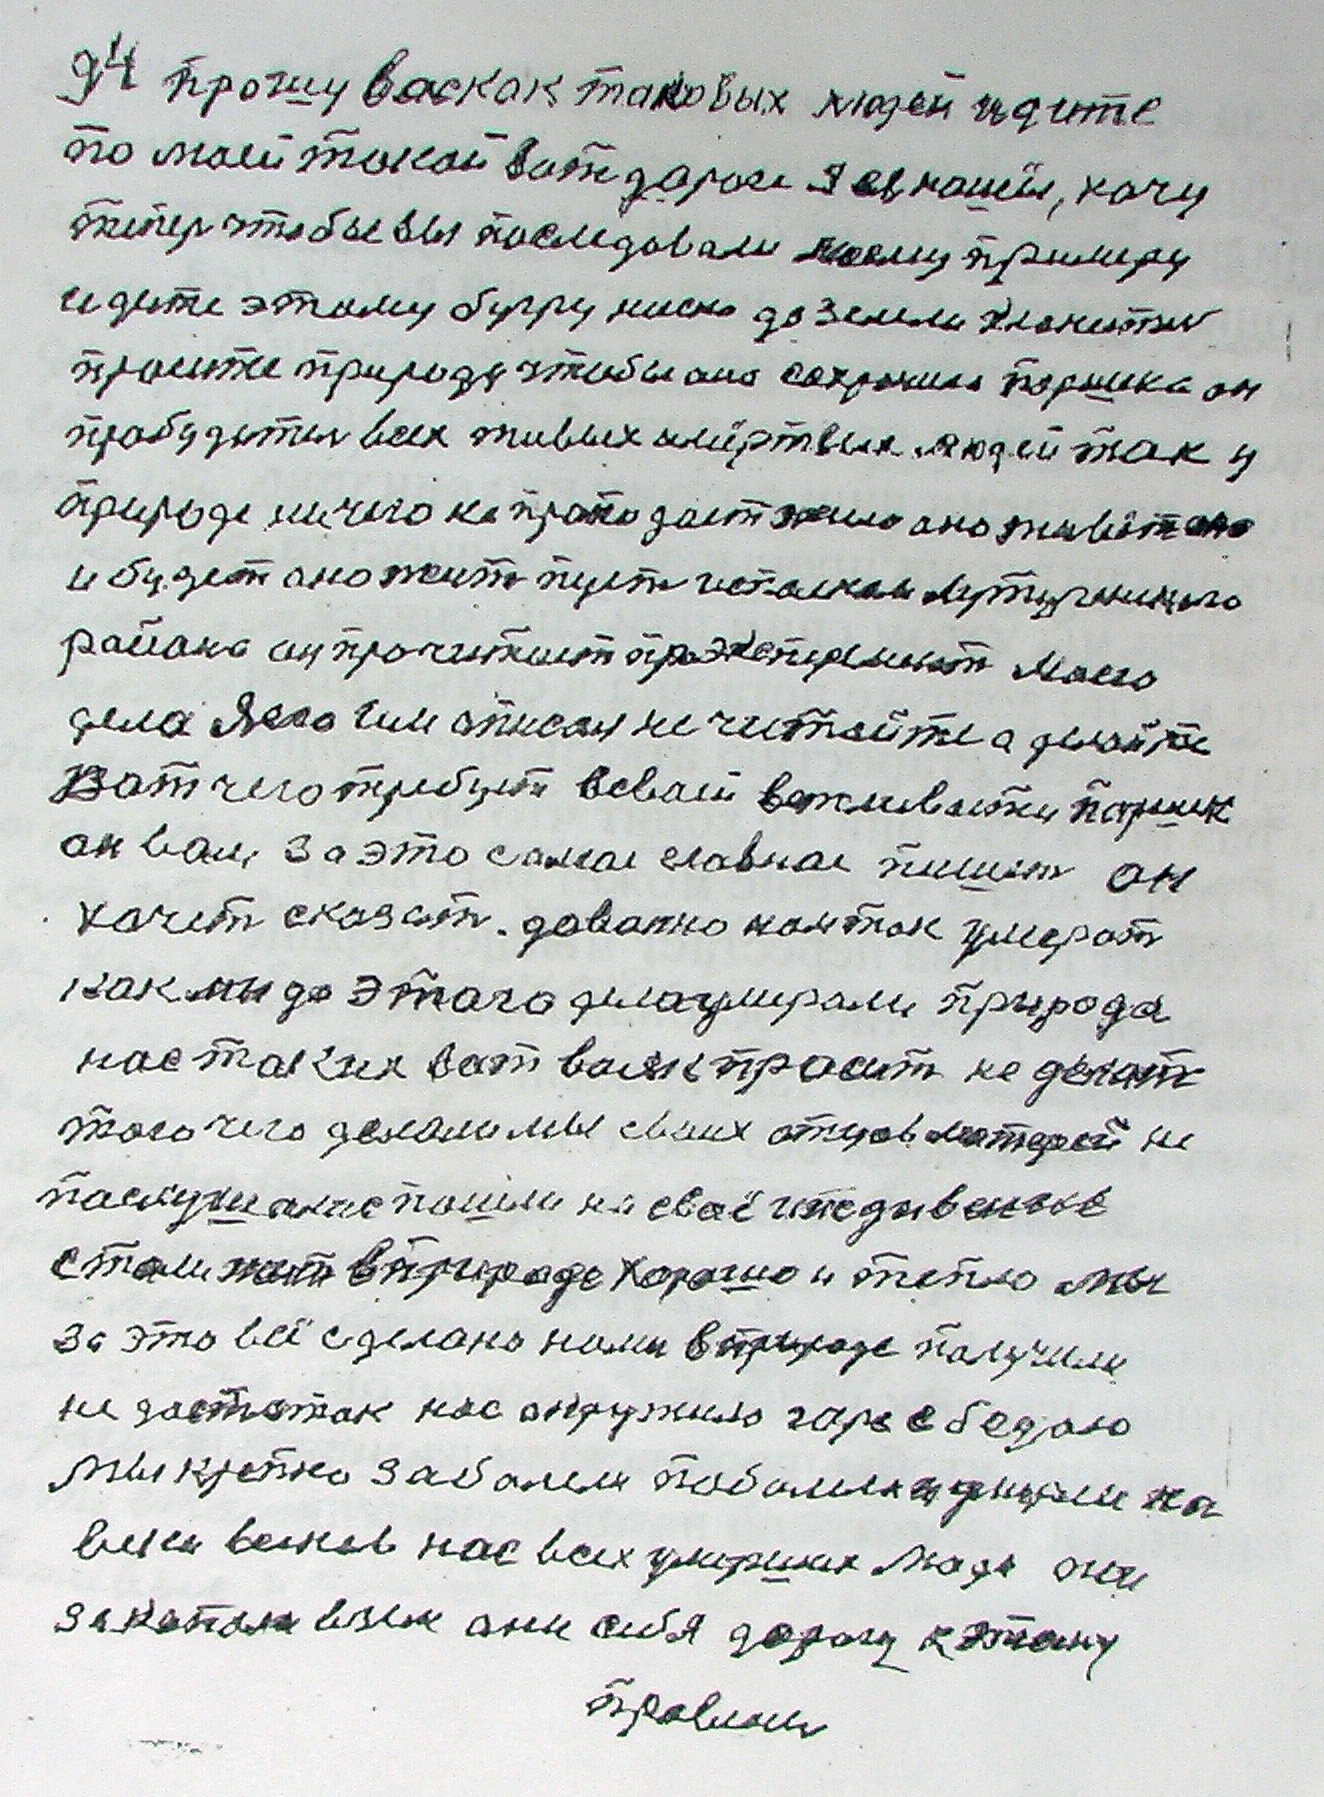 94 прошу вас как таковых людей идите
по моей такой вот дароге я ев нашёл, хочу
тепер чтобы вы последовали моему примеру
идите этому бугру ниско до земли кланитис
просите природу чтобы она сохранила паршика он
пробудится всех живых и мёртвых людей так у
природе ничего не пропадает жило оно живёт оно
и будет оно жит пуст исполком Лутугинского
района их прочитает про эксперимент моего
дела я его им описал не читайте а делайте
вот чего требует в своей важливости паршик
он вам за это самое главное пишет он
хочет сказат. доватно нам так умерат
как мы до этаго дела умирали природа
нас таких вот всех просит не делат
того чего делали мы своих отцов матерей не
послушалис пошли на своё
стали жит в природе хорошо и тепло мы
за это всё сделано нами в природе получили
не достаток нас окружило горе с бедаю
мы крепко заболели поболели и умерли на
веки веков нас всех умерших люди они
закопали в земл они себя дорогу к этому
правили